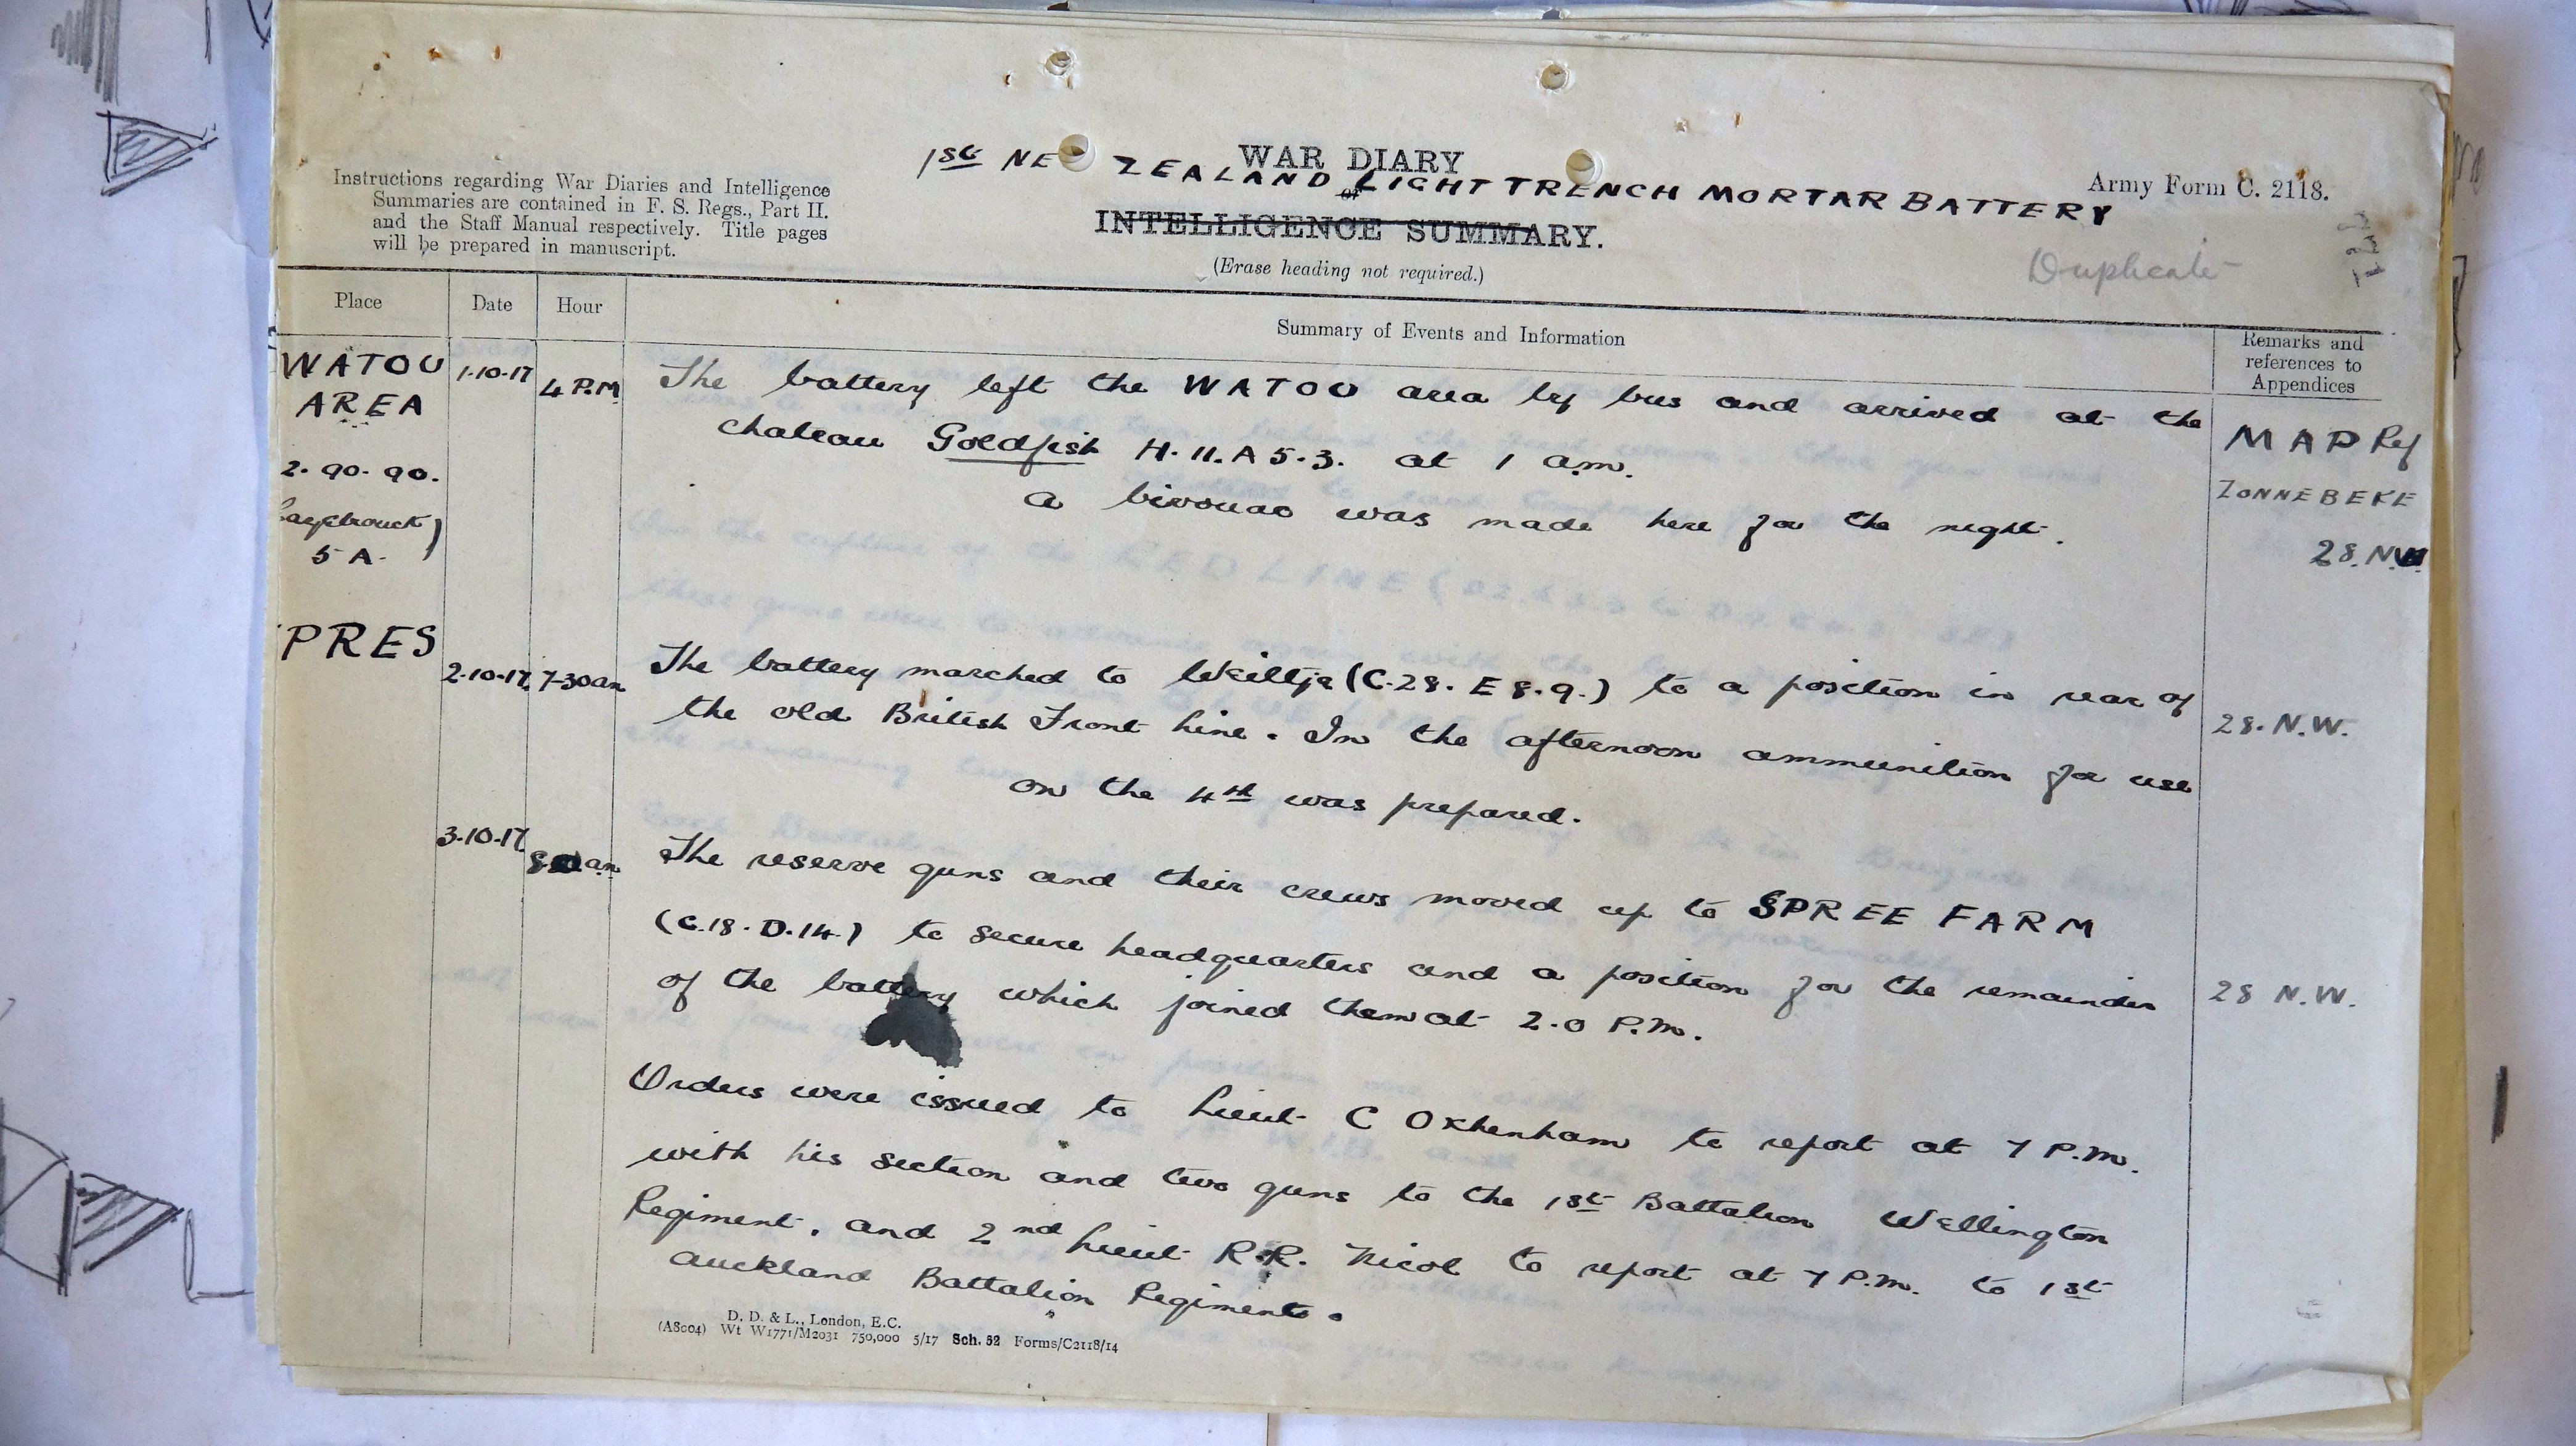 1st NE ZEALAND LIGHT TRENCH MORTAR BATTERY
WAR DIARY
or
INTELLIGENCE SUMMARY.
(Erase heading not required.)
Instructions regarding War Diaries and Intelligence
Summaries are contained in F. S. Regs., Part II.
and the Staff Manual respectively. Title pages
will be prepared in manuscript.
Army Form C. 2118.
Duplicate
Place Date Hour Summary of Events and Information Remarks and
references to
Appendices
WATOU
AREA
2. 90. 90.
5 A.
1.10.17 4 P.M. The battery left the WATOU area by bus and arrived at the
chateau Goldfish H.11.A 5.3. at 1 a.m.
a bivouac was made here for the night.
MAP Ref
ZONNEBEKE
28.N.W.
PRES
2.10.17. 7-30am The battery marched to (C.28. E 8.9.) to a position in rear of
the old British Front Line. In the afternoon ammunition for use
on the 4th was prepared.
28. N.W.
3.10.17 am The reserve guns and their crews moved up to SPREE FARM
(C.18.D.14.) to secure headquarters and a position for the remainder
of the battery which joined them at 2.0 P.M.
28 N.W.
Orders were issued to Lieut C Oxhenham to report at 7 P.M.
with his section and two guns to the 1st Battalion Wellington
Regiment, and 2nd Lieut R.R. Nicol to report at 7 P.M. to 1st
Auckland Battalion Regiment.
D. D. & L., London, E.C.
(A8004) Wt W1771/M2031 750,000 5/17 Sch. 52 Forms/C2118/14